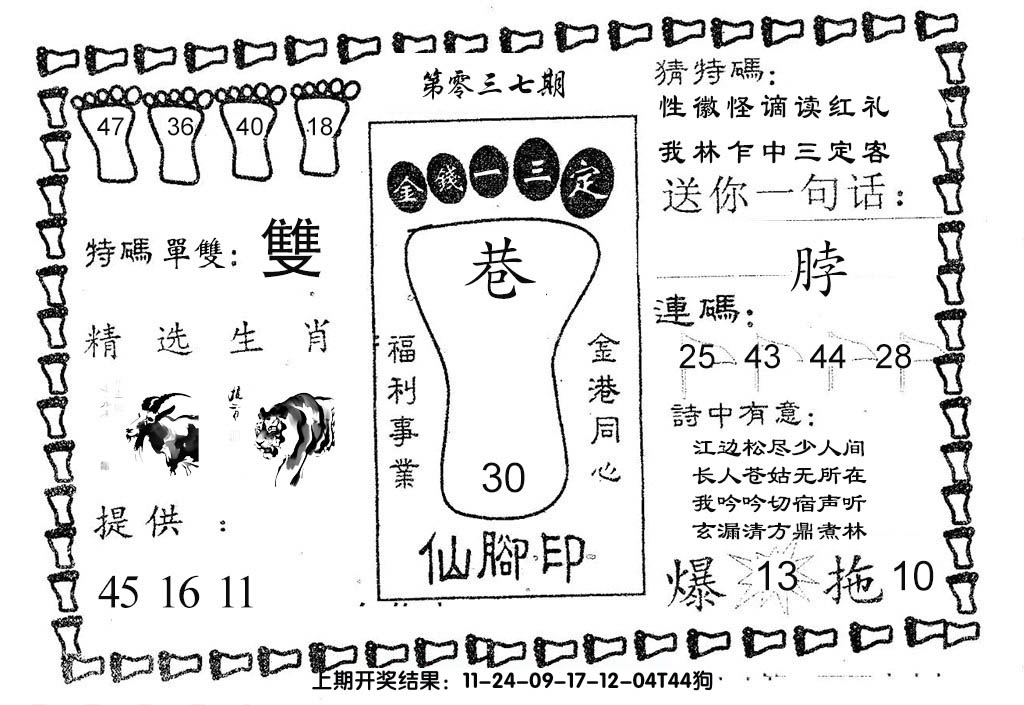 第零三七期
47 36 40 18
特碼單雙：雙
精选生肖
提供：
45 16 11
金錢一三定
巷
福利事業
金港同心
30
仙腳印
猜特碼：
性徽怪谪读红礼
我林乍中三定客
送你一句话：
脖
連碼：
25 43 44 28
詩中有意：
江边松尽少人间
长人苍姑无所在
我吟吟切宿声听
玄漏清方鼎煮林
爆 13 拖 10
上期开奖结果：11-24-09-17-12-04T44狗